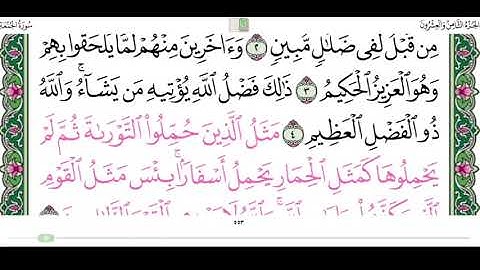 الجزء الثامن والعشرون
سورة الجمعة
مِن قَبْلُ لَفِى ضَلَٰلٍ مُّبِينٍ ٢ وَءَاخَرِينَ مِنْهُمْ لَمَّا يَلْحَقُوا۟ بِهِمْ
وَهُوَ ٱلْعَزِيزُ ٱلْحَكِيمُ ٣ ذَٰلِكَ فَضْلُ ٱللَّهِ يُؤْتِيهِ مَن يَشَآءُ ۚ وَٱللَّهُ
ذُو ٱلْفَضْلِ ٱلْعَظِيمِ ٤ مَثَلُ ٱلَّذِينَ حُمِّلُوا۟ ٱلتَّوْرَىٰةَ ثُمَّ لَمْ
يَحْمِلُوهَا كَمَثَلِ ٱلْحِمَارِ يَحْمِلُ أَسْفَارًۢا ۚ بِئْسَ مَثَلُ ٱلْقَوْمِ
٥٥٣